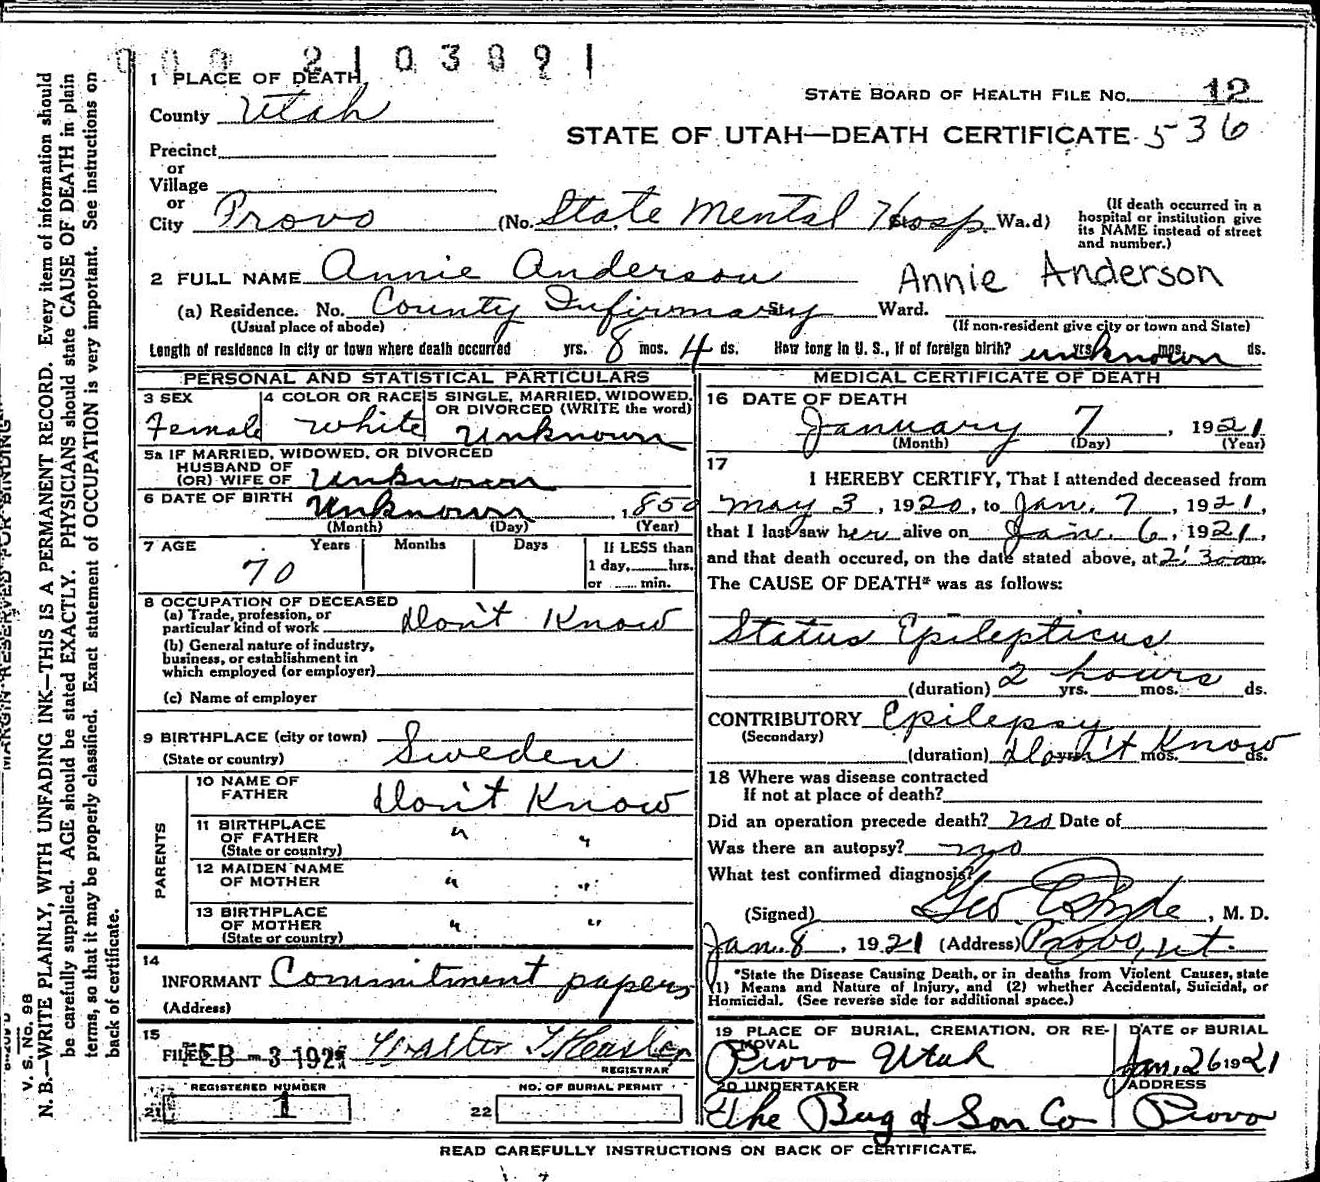 000 2103091
1 PLACE OF DEATH
County Utah
STATE BOARD OF HEALTH FILE NO. 12
STATE OF UTAH—DEATH CERTIFICATE 536
Precinct
or
Village
or
City Provo (No. State Mental Hosp. Wa.d)
(If death occurred in a
hospital or institution give
its NAME instead of street
and number.)
2 FULL NAME Annie Anderson Annie Anderson
(a) Residence. No. County Infirmary St. Ward.
(Usual place of abode) (If non-resident give city or town and State)
Length of residence in city or town where death occurred yrs. 8 mos. 4 ds. How long in U. S., if of foreign birth? unknown yrs. mos. ds.
PERSONAL AND STATISTICAL PARTICULARS
3 SEX 4 COLOR OR RACE 5 SINGLE, MARRIED, WIDOWED,
OR DIVORCED (WRITE the word)
Female White Unknown
5a IF MARRIED, WIDOWED, OR DIVORCED
HUSBAND OF
(OR) WIFE OF Unknown
6 DATE OF BIRTH Unknown 1850
(Month) (Day) (Year)
7 AGE Years Months Days If LESS than
1 day, hrs.
or min.
70
8 OCCUPATION OF DECEASED
(a) Trade, profession, or
particular kind of work Don't Know
(b) General nature of industry,
business, or establishment in
which employed (or employer)
(c) Name of employer
9 BIRTHPLACE (city or town)
(State or country) Sweden
PARENTS
10 NAME OF
FATHER Don't Know
11 BIRTHPLACE
OF FATHER " "
(State or country)
12 MAIDEN NAME
OF MOTHER " "
13 BIRTHPLACE
OF MOTHER " "
(State or country)
14
INFORMANT Commitment papers
(Address)
15
FILED FEB - 3 1921 Walter T Hasler
REGISTRAR
REGISTERED NUMBER NO. OF BURIAL PERMIT
21 1 22
MEDICAL CERTIFICATE OF DEATH
16 DATE OF DEATH
January 7, 1921
(Month) (Day) (Year)
17
I HEREBY CERTIFY, That I attended deceased from
May 3, 1920, to Jan. 7, 1921,
that I last saw her alive on Jan. 6, 1921,
and that death occured, on the date stated above, at 2:30 am.
The CAUSE OF DEATH* was as follows:
Status Epilepticus
2 hours
(duration) yrs. mos. ds.
CONTRIBUTORY Epilepsy
(Secondary)
(duration) Don't Know yrs. mos. ds.
18 Where was disease contracted
If not at place of death?
Did an operation precede death? no Date of
Was there an autopsy? no
What test confirmed diagnosis?
(Signed) Geo. E. Hyde, M. D.
Jan. 8, 1921 (Address) Provo, Ut.
*State the Disease Causing Death, or in deaths from Violent Causes, state
(1) Means and Nature of Injury, and (2) whether Accidental, Suicidal, or
Homicidal. (See reverse side for additional space.)
19 PLACE OF BURIAL, CREMATION, OR RE-
MOVAL DATE OF BURIAL
Provo Utah Jan. 26 1921
20 UNDERTAKER ADDRESS
The Berg & Son Co Provo
READ CAREFULLY INSTRUCTIONS ON BACK OF CERTIFICATE.
V. S. No. 98
N. B.—WRITE PLAINLY, WITH UNFADING INK—THIS IS A PERMANENT RECORD. Every item of information should
be carefully supplied. AGE should be stated EXACTLY. PHYSICIANS should state CAUSE OF DEATH in plain
terms, so that it may be properly classified. Exact statement of OCCUPATION is very important. See instructions on
back of certificate.
MARGIN RESERVED FOR BINDING